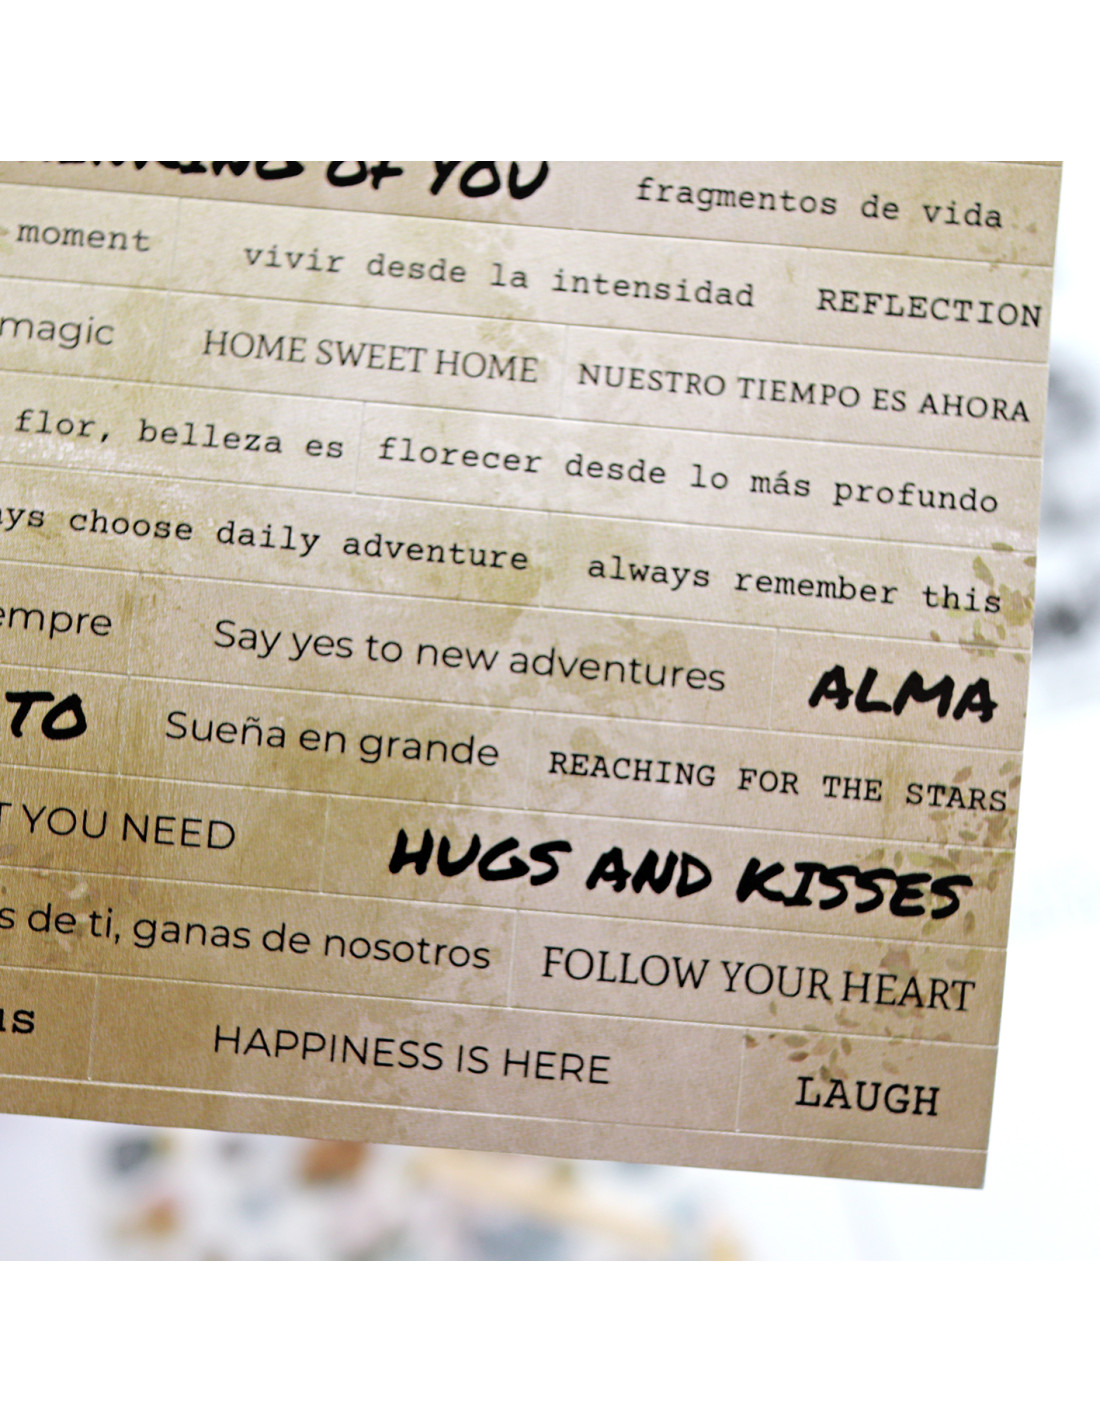 OF YOU fragmentos de vida
moment vivir desde la intensidad REFLECTION
magic HOME SWEET HOME NUESTRO TIEMPO ES AHORA
flor, belleza es florecer desde lo más profundo
choose daily adventure always remember this
Say yes to new adventures ALMA
TO Sueña en grande REACHING FOR THE STARS
YOU NEED HUGS AND KISSES
de ti, ganas de nosotros FOLLOW YOUR HEART
HAPPINESS IS HERE LAUGH